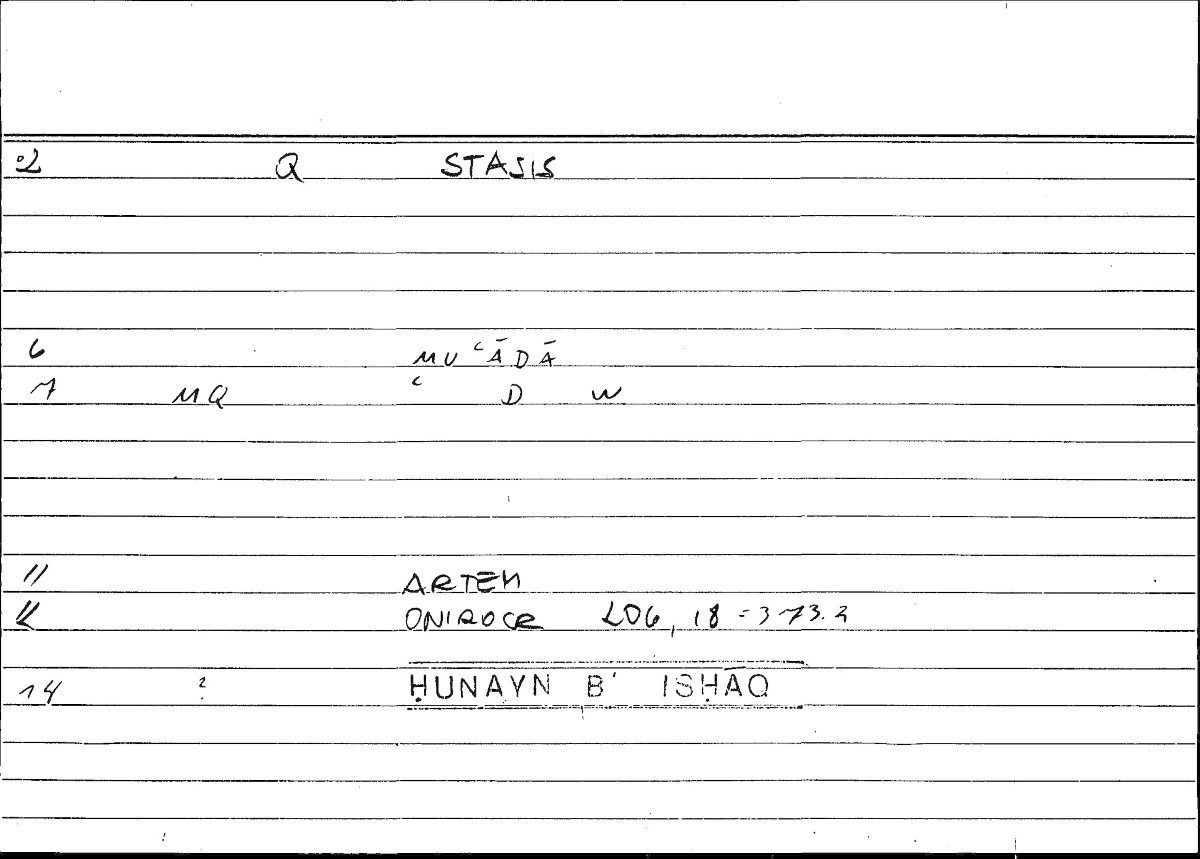 2 Q STASIS
6 MU ʿĀDĀ
7 MQ ʿ D W
11 ARTEM
12 ONIROCR 206, 18 = 373.2
14 ? ḤUNAYN B' ISḤĀQ